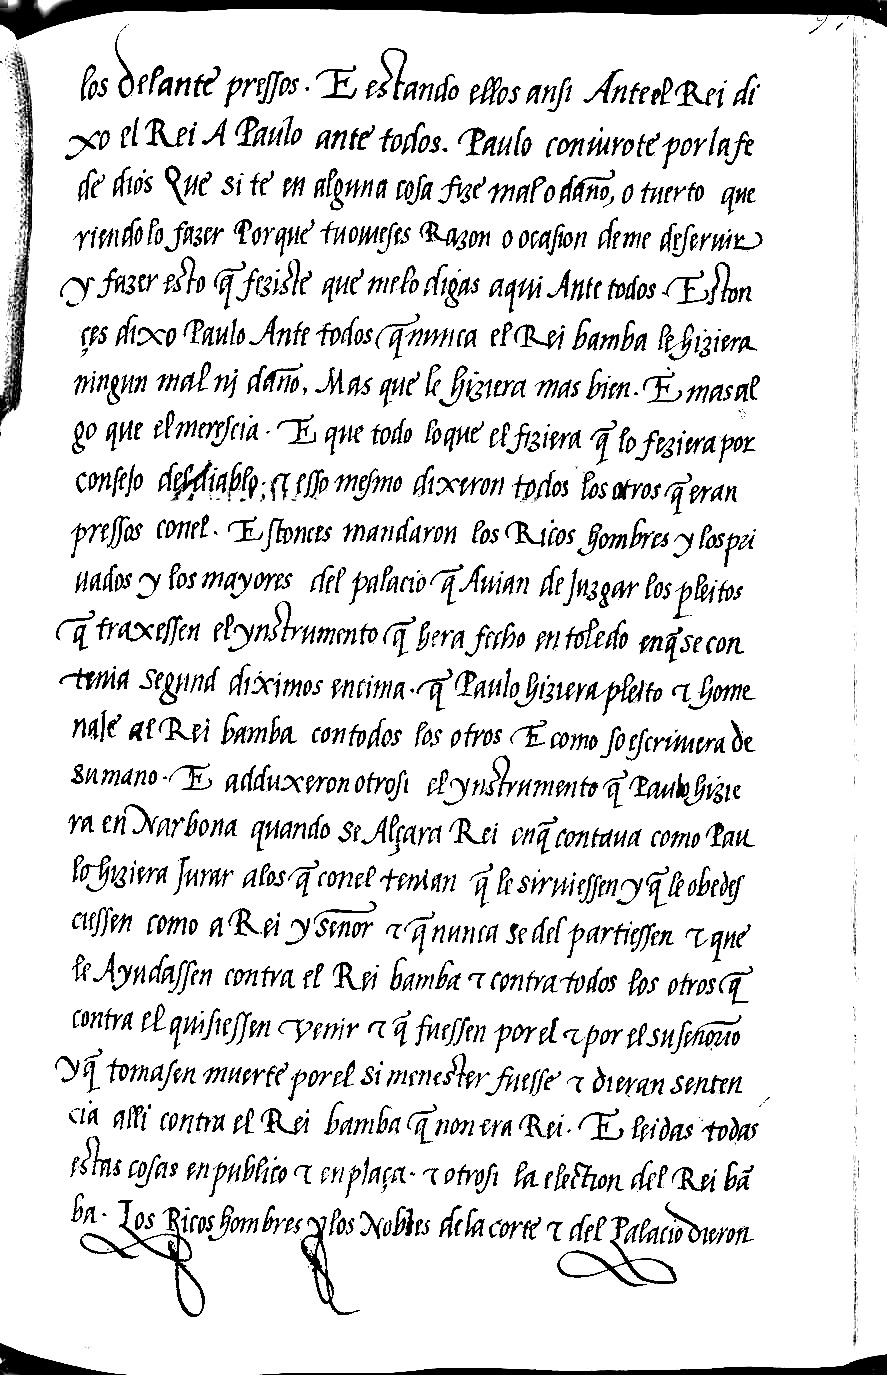 los delante pressos. E estando ellos ansi Ante el Rei di
xo el Rei A Paulo ante todos. Paulo coniurote por la fe
de dios Que si te en alguna cosa fize mal o daño, o tuerto que
riendolo fazer Porque tuuieses Razon o ocasion de me deseruir
y fazer esto q̃ feziste que melo digas aqui Ante todos. Eston
çes dixo Paulo Ante todos q̃ nunca el Rei bamba le hiziera
ningun mal nj daño. Mas que le hiziera mas bien. E mas al
go que el merescia. E que todo lo que el fiziera q̃ lo feziera por
consejo del diablo; ⁊ esso mesmo dixeron todos los otros q̃ eran
pressos conel. Estonces mandaron los Ricos hombres y los pri
uados y los mayores del palacio q̃ Auian de Juzgar los pleitos
q̃ traxessen el ynstrumento q̃ hera fecho en toledo enq̃ se con
tenia segund diximos encima. q̃ Paulo hiziera pleito ⁊ home
naje al Rei bamba con todos los otros E como so escriuiera de
su mano. E adduxeron otrosi el ynstrumento q̃ Paulo hizie
ra en Narbona quando se Alçara Rei enq̃ contaua como Pau
lo hiziera Jurar a los q̃ conel tenian q̃ le siruiessen y q̃ le obedes
ciessen como a Rei y señor ⁊ q̃ nunca se del partiessen ⁊ que
le Ayudassen contra el Rei bamba ⁊ contra todos los otros q̃
contra el quisiessen venir ⁊ q̃ fuessen por el ⁊ por el su señorio
y q̃ tomasen muerte por el si menester fuesse ⁊ dieran senten
cia alli contra el Rei bamba q̃ non era Rei. E leidas todas
estas cosas en publico ⁊ en plaça. ⁊ otrosi la election del Rei bã
ba. Los Ricos hombres y los Nobles de la corte ⁊ del Palacio dieron